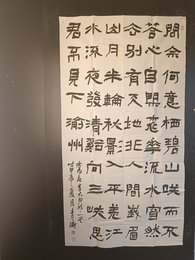 問余何意栖碧山咲而不
答心自閑桃華流水窅然
去別有天地非人間峨眉
山月半輪秋影入平羌江
水流夜發清谿向三峽思
君不見下渝州